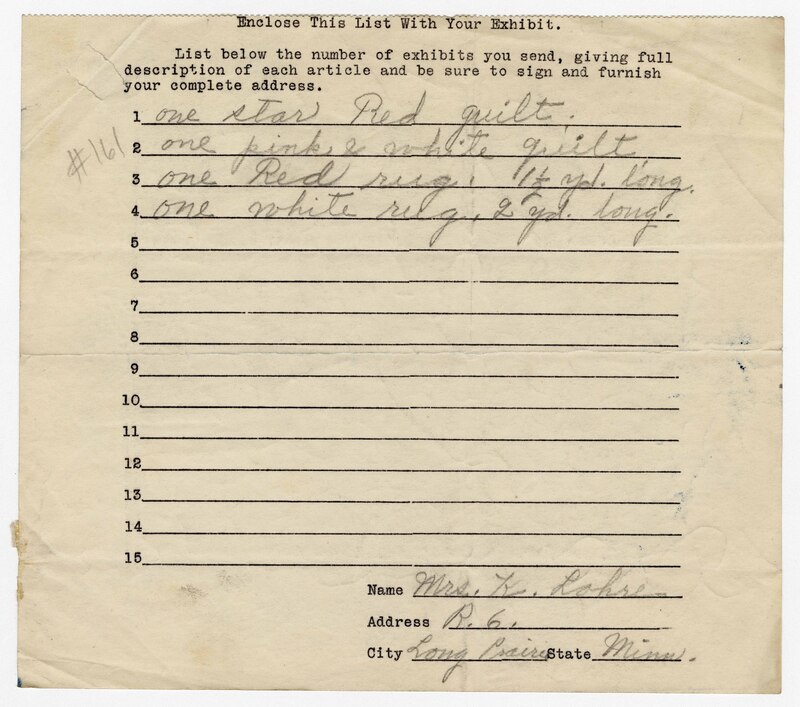 Enclose This List With Your Exhibit.
List below the number of exhibits you send, giving full
description of each article and be sure to sign and furnish
your complete address.
#161
1 one star Red quilt.
2 one pink & white quilt
3 one Red rug. 1½ yd. long.
4 one white rug, 2 yd. long.
5
6
7
8
9
10
11
12
13
14
15
Name Mrs. K. Lohre
Address R. 6.
City Long Prairie State Minn.